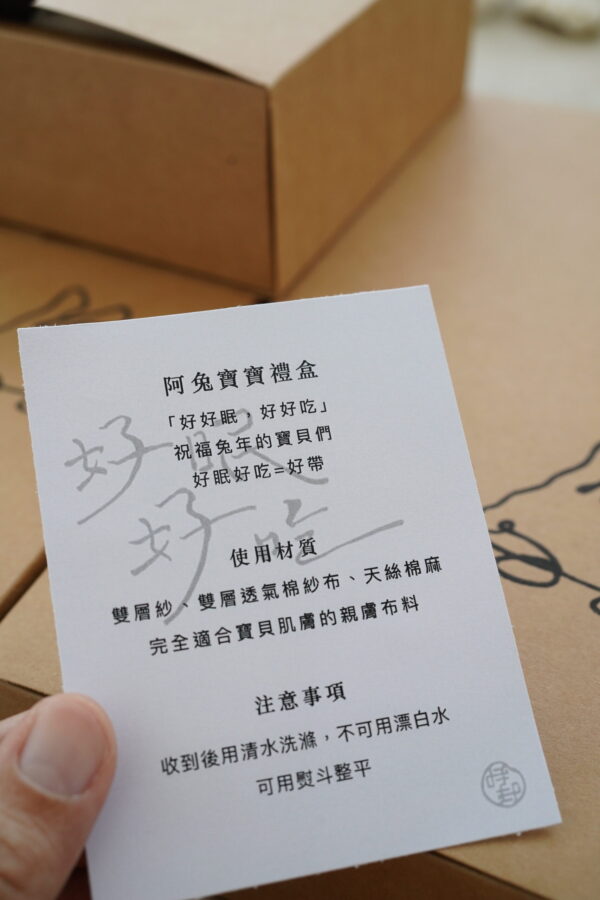 阿兔寶寶禮盒
「好好眠，好好吃」
祝福兔年的寶貝們
好眠好吃=好帶
好眠
好吃
使用材質
雙層紗、雙層透氣棉紗布、天絲棉麻
完全適合寶貝肌膚的親膚布料
注意事項
收到後用清水洗滌，不可用漂白水
可用熨斗整平